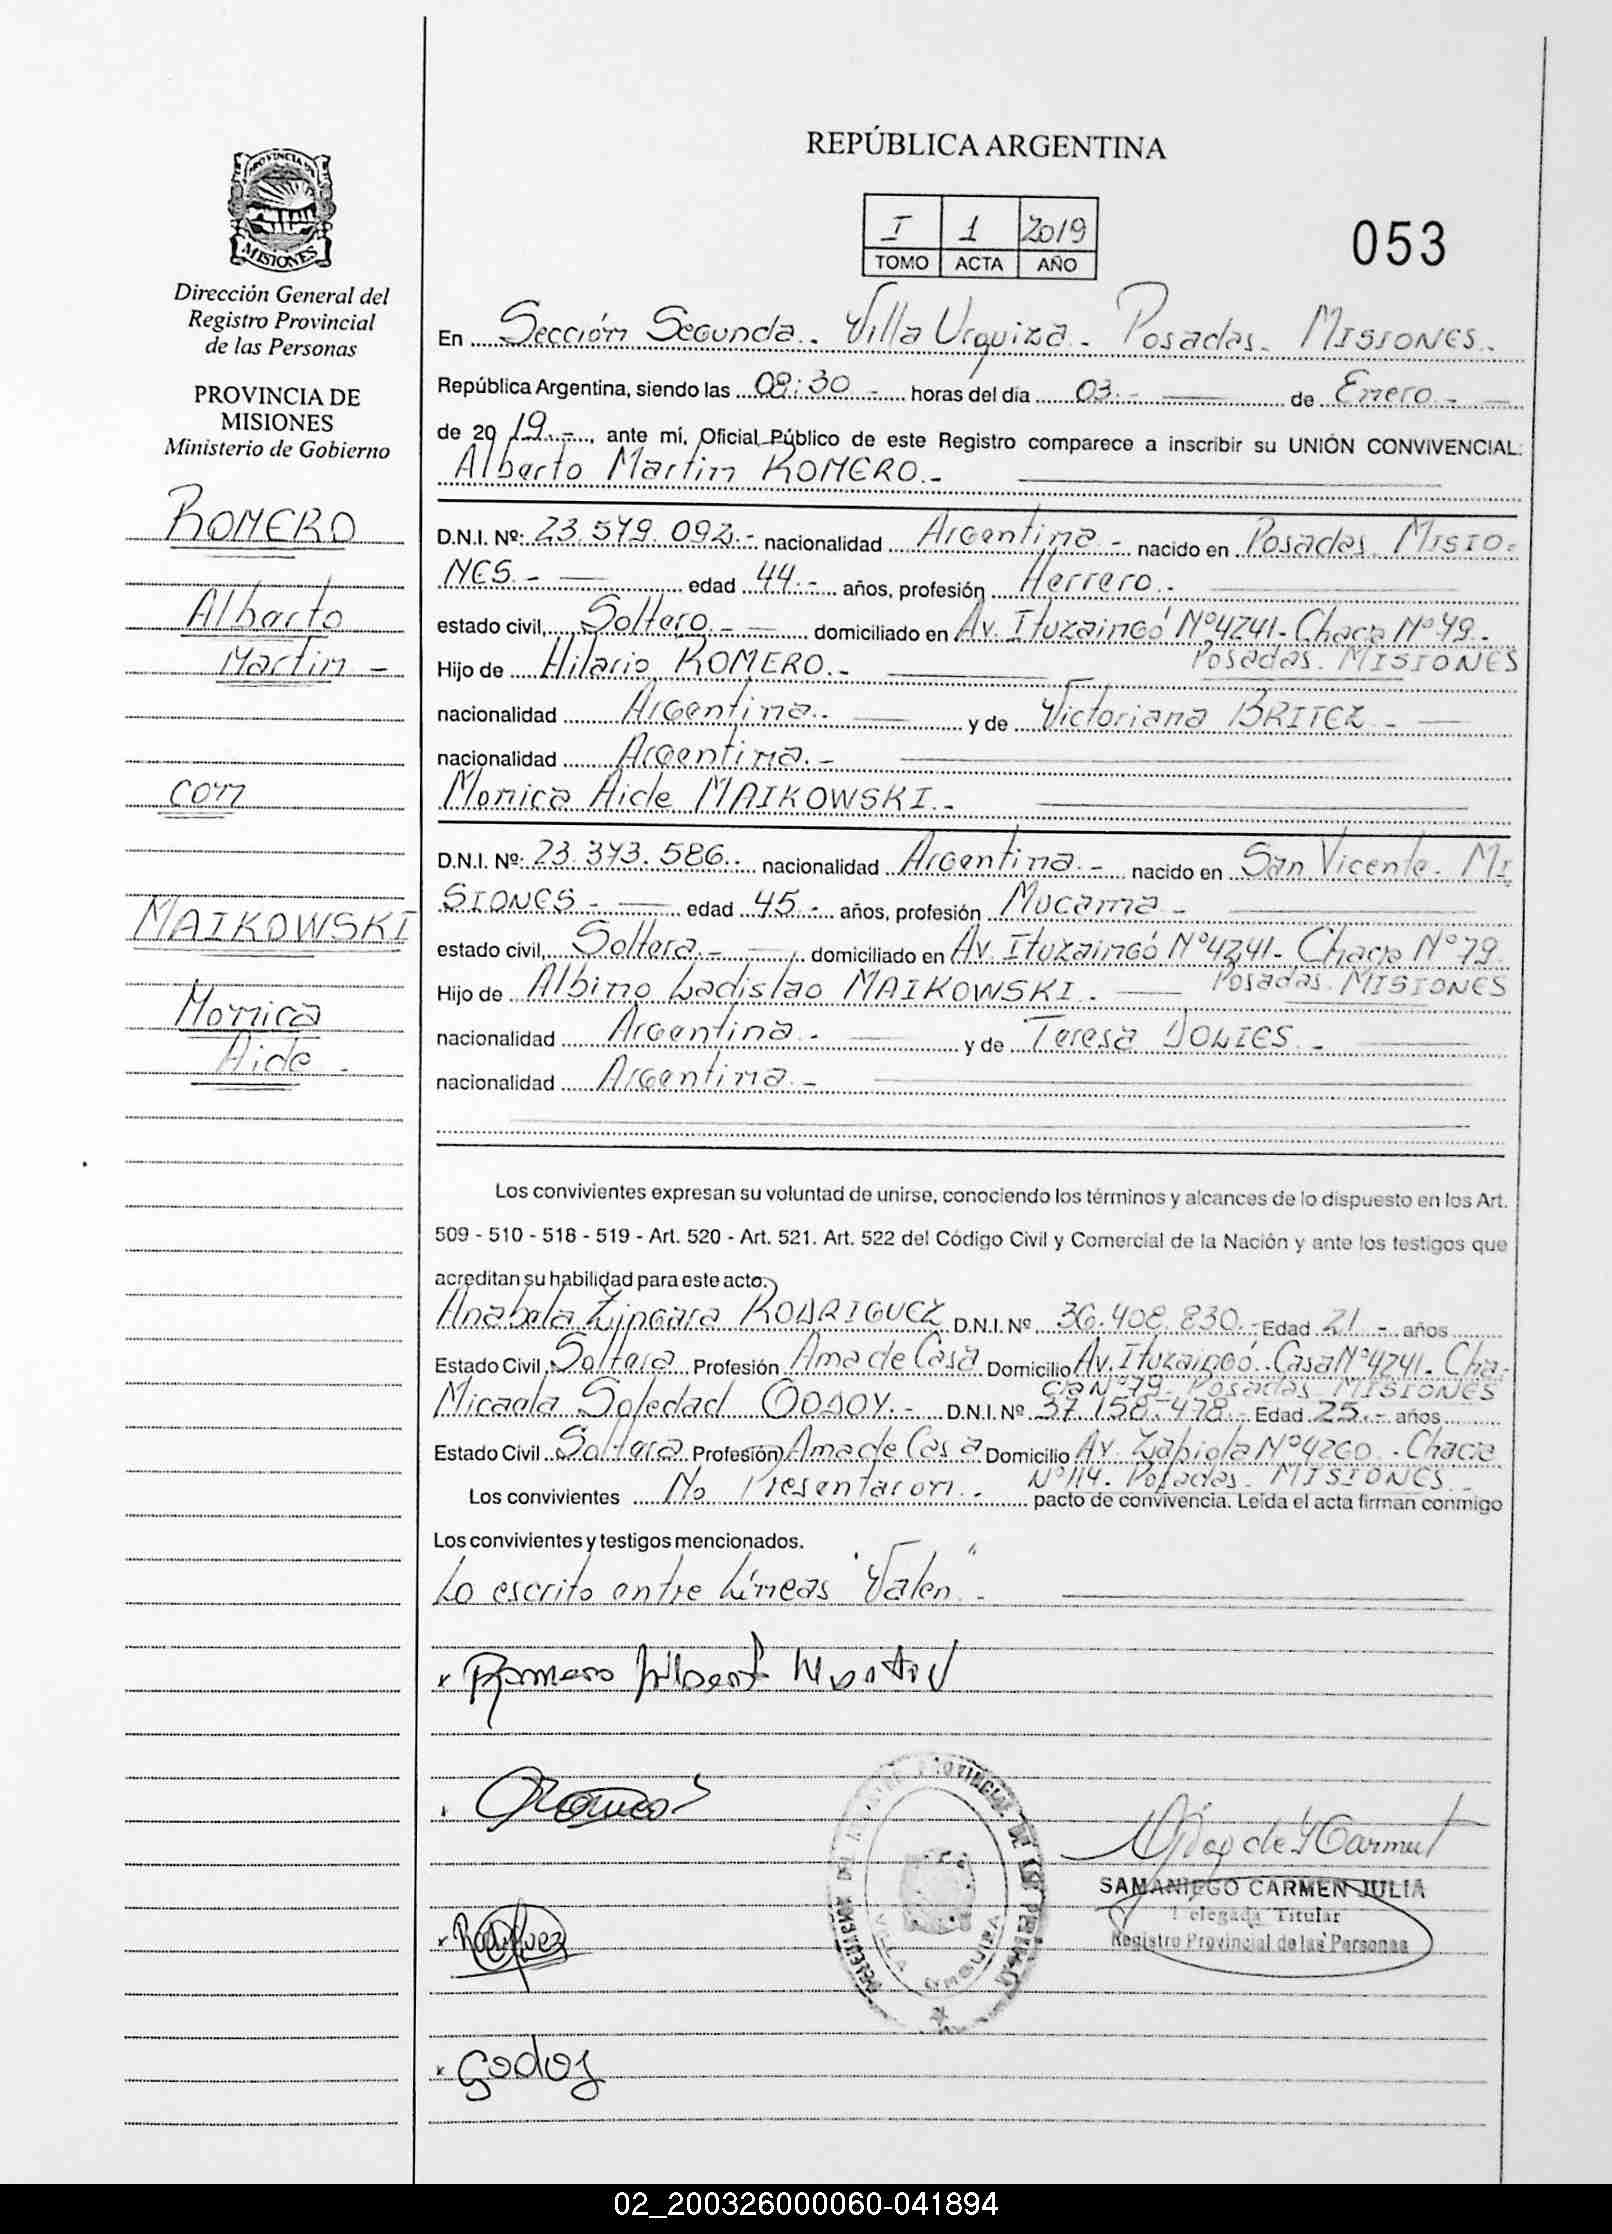 REPÚBLICA ARGENTINA
I 1 2019
TOMO ACTA AÑO
053
PROVINCIA DE
MISIONES
Dirección General del
Registro Provincial
de las Personas
PROVINCIA DE
MISIONES
Ministerio de Gobierno
ROMERO
Alberto
Martin -
con
MAIKOWSKI
Monica
Aide -
En Sección Segunda.. Villa Urquiza - Posadas - MISIONES.
República Argentina, siendo las 08:30 - horas del día 03.- de Enero.-
de 20 19.-, ante mí, Oficial Público de este Registro comparece a inscribir su UNIÓN CONVIVENCIAL:
Alberto Martin ROMERO.-
D.N.I. Nº: 23.579.092.- nacionalidad Argentina - nacido en Posadas MISIO-
NES.- edad 44.- años, profesión Herrero.-
estado civil, Soltero.- domiciliado en Av. Ituzaingó Nº 4241- Chacra Nº 79.-
Posadas. MISIONES
Hijo de Hilario ROMERO.-
nacionalidad Argentina.- y de Victoriana BRITEZ -
nacionalidad Argentina.-
Monica Aide MAIKOWSKI.-
D.N.I. Nº: 23.373.586.. nacionalidad Argentina.- nacido en San Vicente. MI
SIONES - edad 45.- años, profesión Mucama -
estado civil, Soltera.- domiciliado en Av. Ituzaingó Nº 4241- Chacra Nº 79.
Posadas. MISIONES
Hijo de Albino Ladislao MAIKOWSKI.
nacionalidad Argentina.- y de Teresa -
nacionalidad Argentina.-
Los convivientes expresan su voluntad de unirse, conociendo los términos y alcances de lo dispuesto en los Art.
509 - 510 - 518 - 519 - Art. 520 - Art. 521. Art. 522 del Código Civil y Comercial de la Nación y ante los testigos que
acreditan su habilidad para este acto:
Anabela RODRIGUEZ D.N.I. Nº 36.408.830.- Edad 21 - años
Estado Civil Soltera Profesión Ama de Casa Domicilio Av. Ituzaingó. Casa Nº 4241- Cha-
cra Nº 79- Posadas MISIONES
Micaela Soledad GODOY.- D.N.I. Nº 37.158.478.- Edad 25.- años
Estado Civil Soltera Profesión Ama de Casa Domicilio Av. Zapiola Nº 4260.- Chacra
Nº 114. Posadas. MISIONES.
Los convivientes No Presentaron. pacto de convivencia. Leída el acta firman conmigo
Los convivientes y testigos mencionados.
Lo escrito entre Líneas "Valen".-
x Romero Albert Martin
x Rodriguez
x Godoy
VILLA URQUIZA
SAMANIEGO CARMEN JULIA
Delegada Titular
Registro Provincial de las Personas
02_200326000060-041894